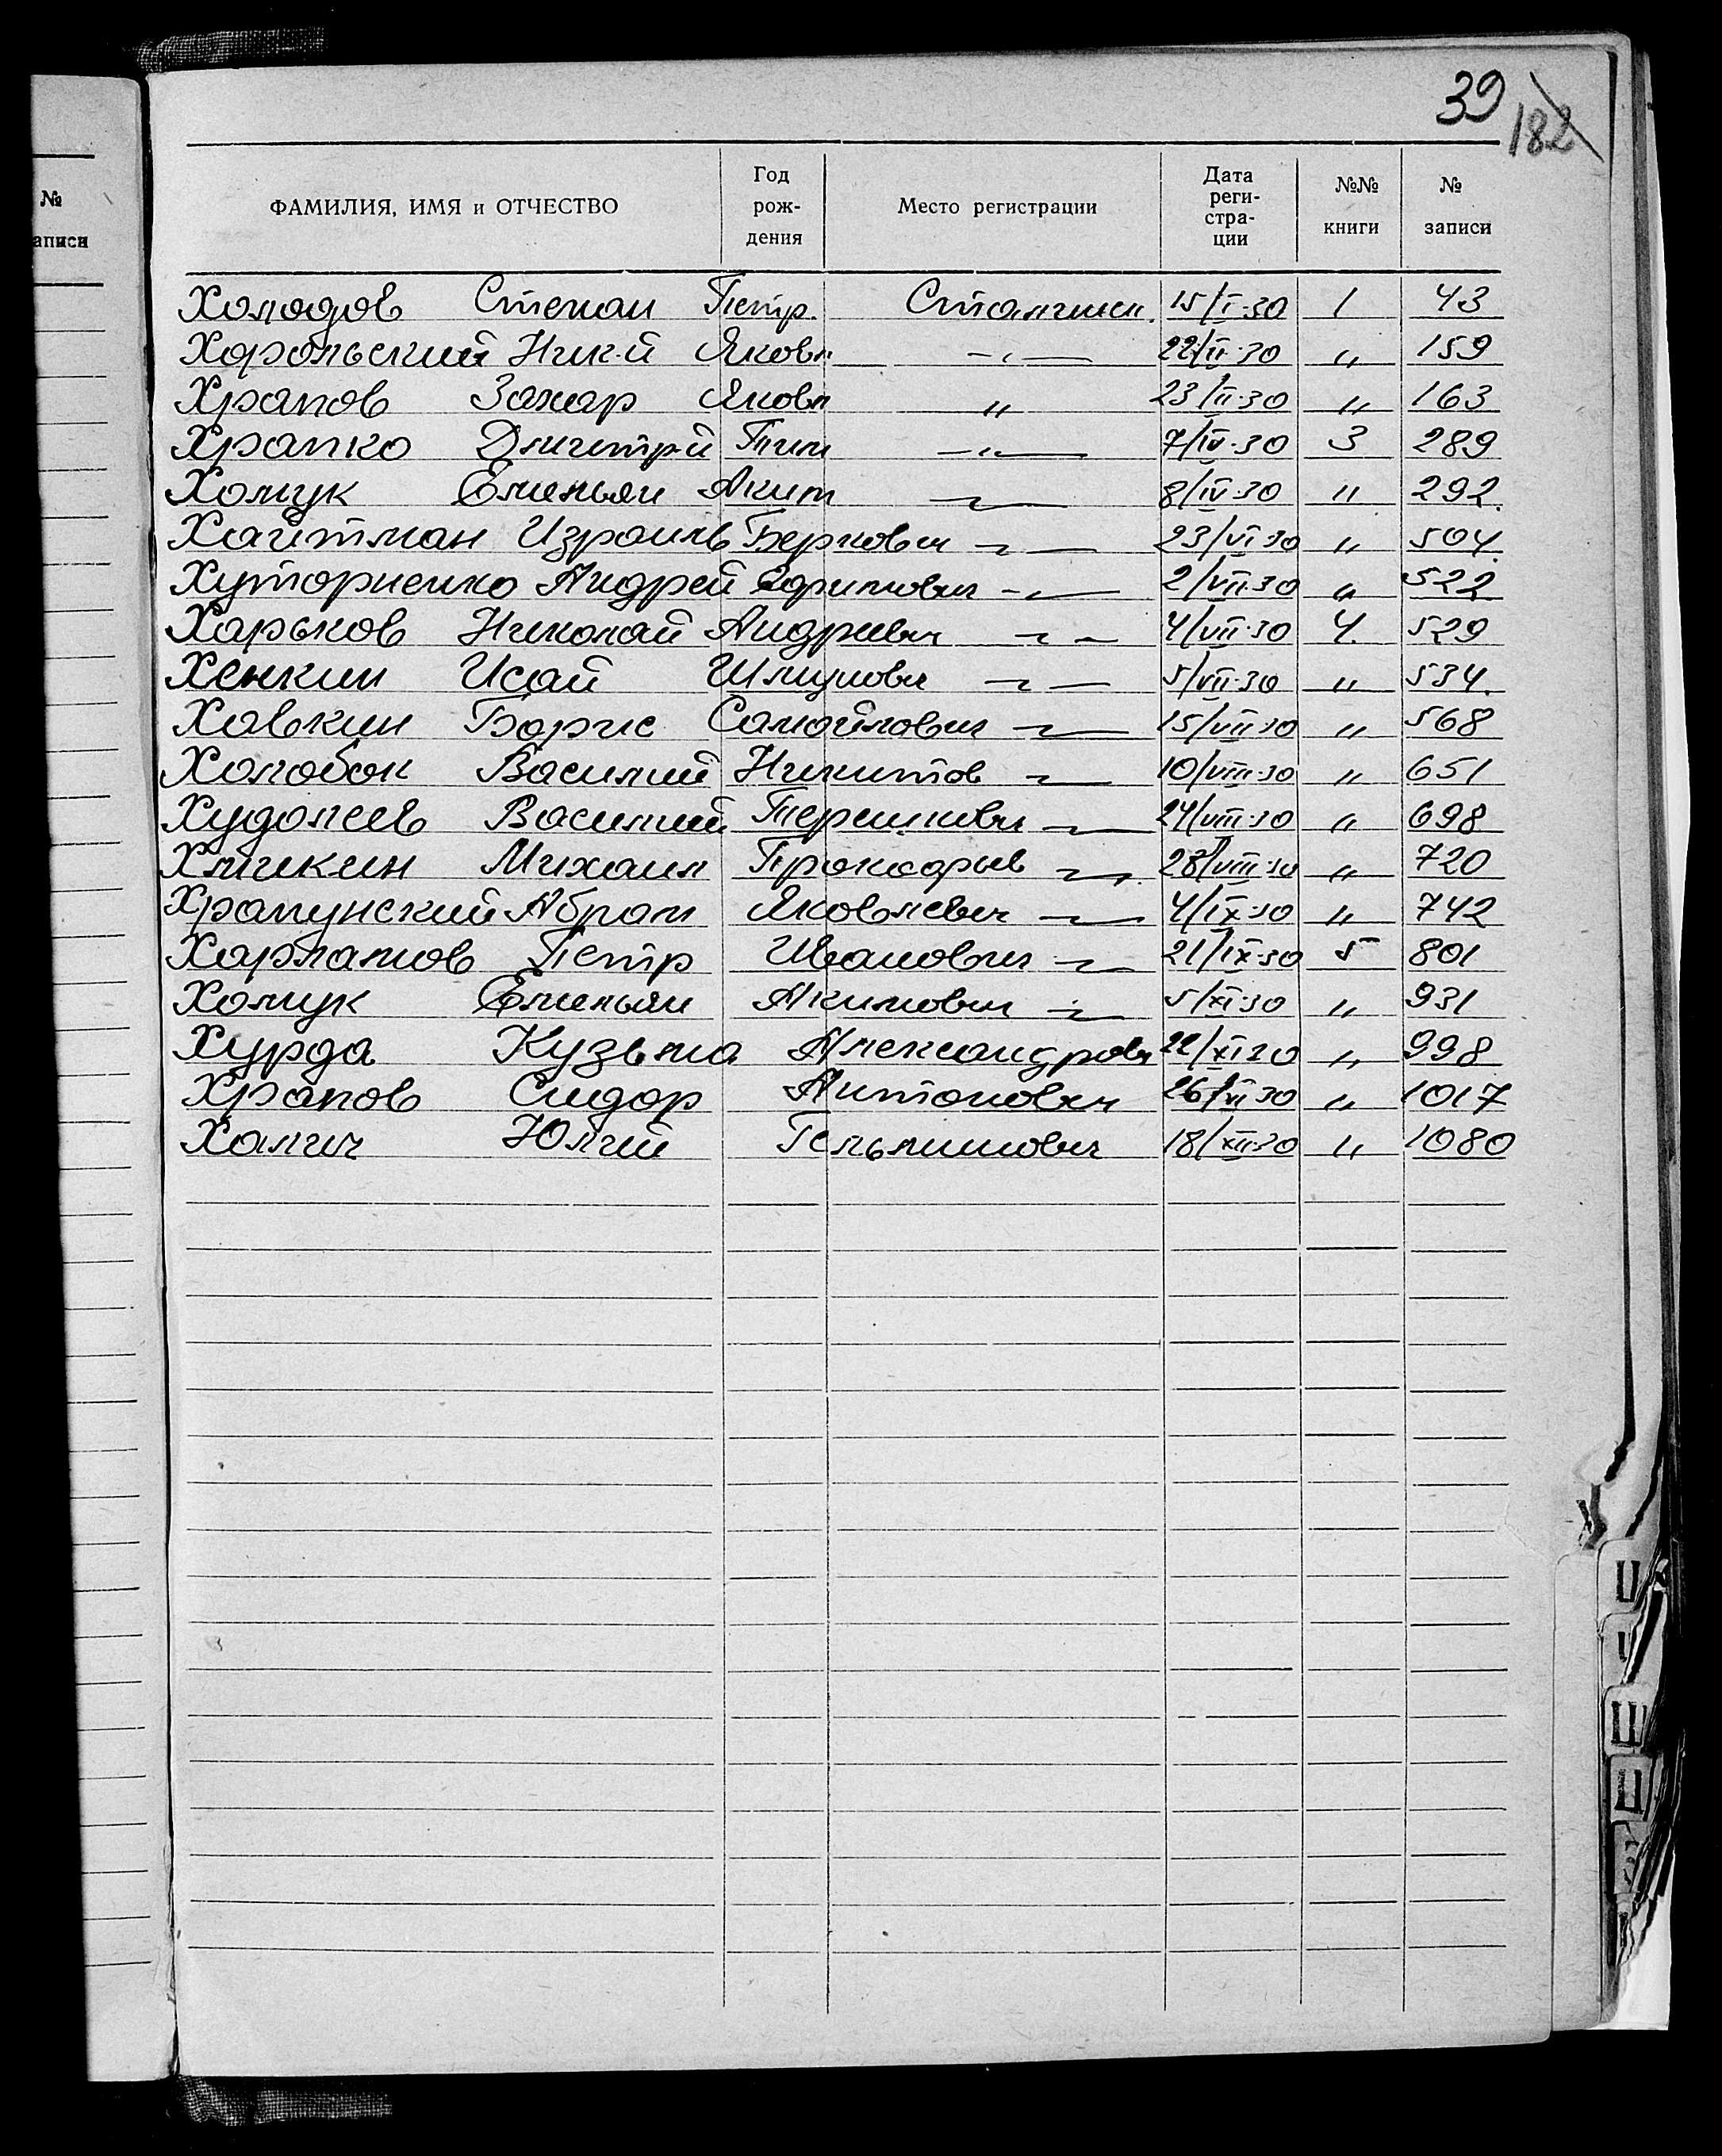 39 182
№
аписи
ФАМИЛИЯ, ИМЯ и ОТЧЕСТВО
Год рож-
дения
Место регистрации
Дата реги-
стра-
ции
№№ книги
№ записи
Холодов Степан Петр. 15/I-30 1 43
Харольский Ник-й Яковл —„— 22/II-30 „ 159
Храпов Захар Яковл „ 23/II-30 „ 163
Храпко Дмитр-й Тим —„— 7/IV-30 3 289
Хомук Емельян Аким —„— 8/IV-30 „ 292.
Хайтман Израиль Беркович —„— 23/VI-30 „ 504.
Хуторненко Андрей Ефимович —„— 2/VII-30 „ 522
Харьков Николай Андреевич —„— 4/VII-30 4. 529
Хенкин Исай Шлиумович —„— 5/VII-30 „ 534.
Хавкин Борис Самойлович —„— 15/VII-30 „ 568
Холобок Василий Никитов —„— 10/VIII-30 „ 651
Худолеев Василий Терешкович —„— 24/VIII-30 „ 698
Хмикин Михаил Прокофьев —„— 28/VIII-30 „ 720
Храпунский Абрам Яковлевич —„— 4/IX-30 „ 742
Харламов Петр Иванович —„— 21/IX-30 5 801
Хомук Емельян Акимович —„— 5/XI-30 „ 931
Хурда Кузьма Александрович 22/XI-30 „ 998
Храпов Сидор Антонович 26/XI-30 „ 1017
Халич Юлий 18/XII-30 „ 1080
Х
Ш